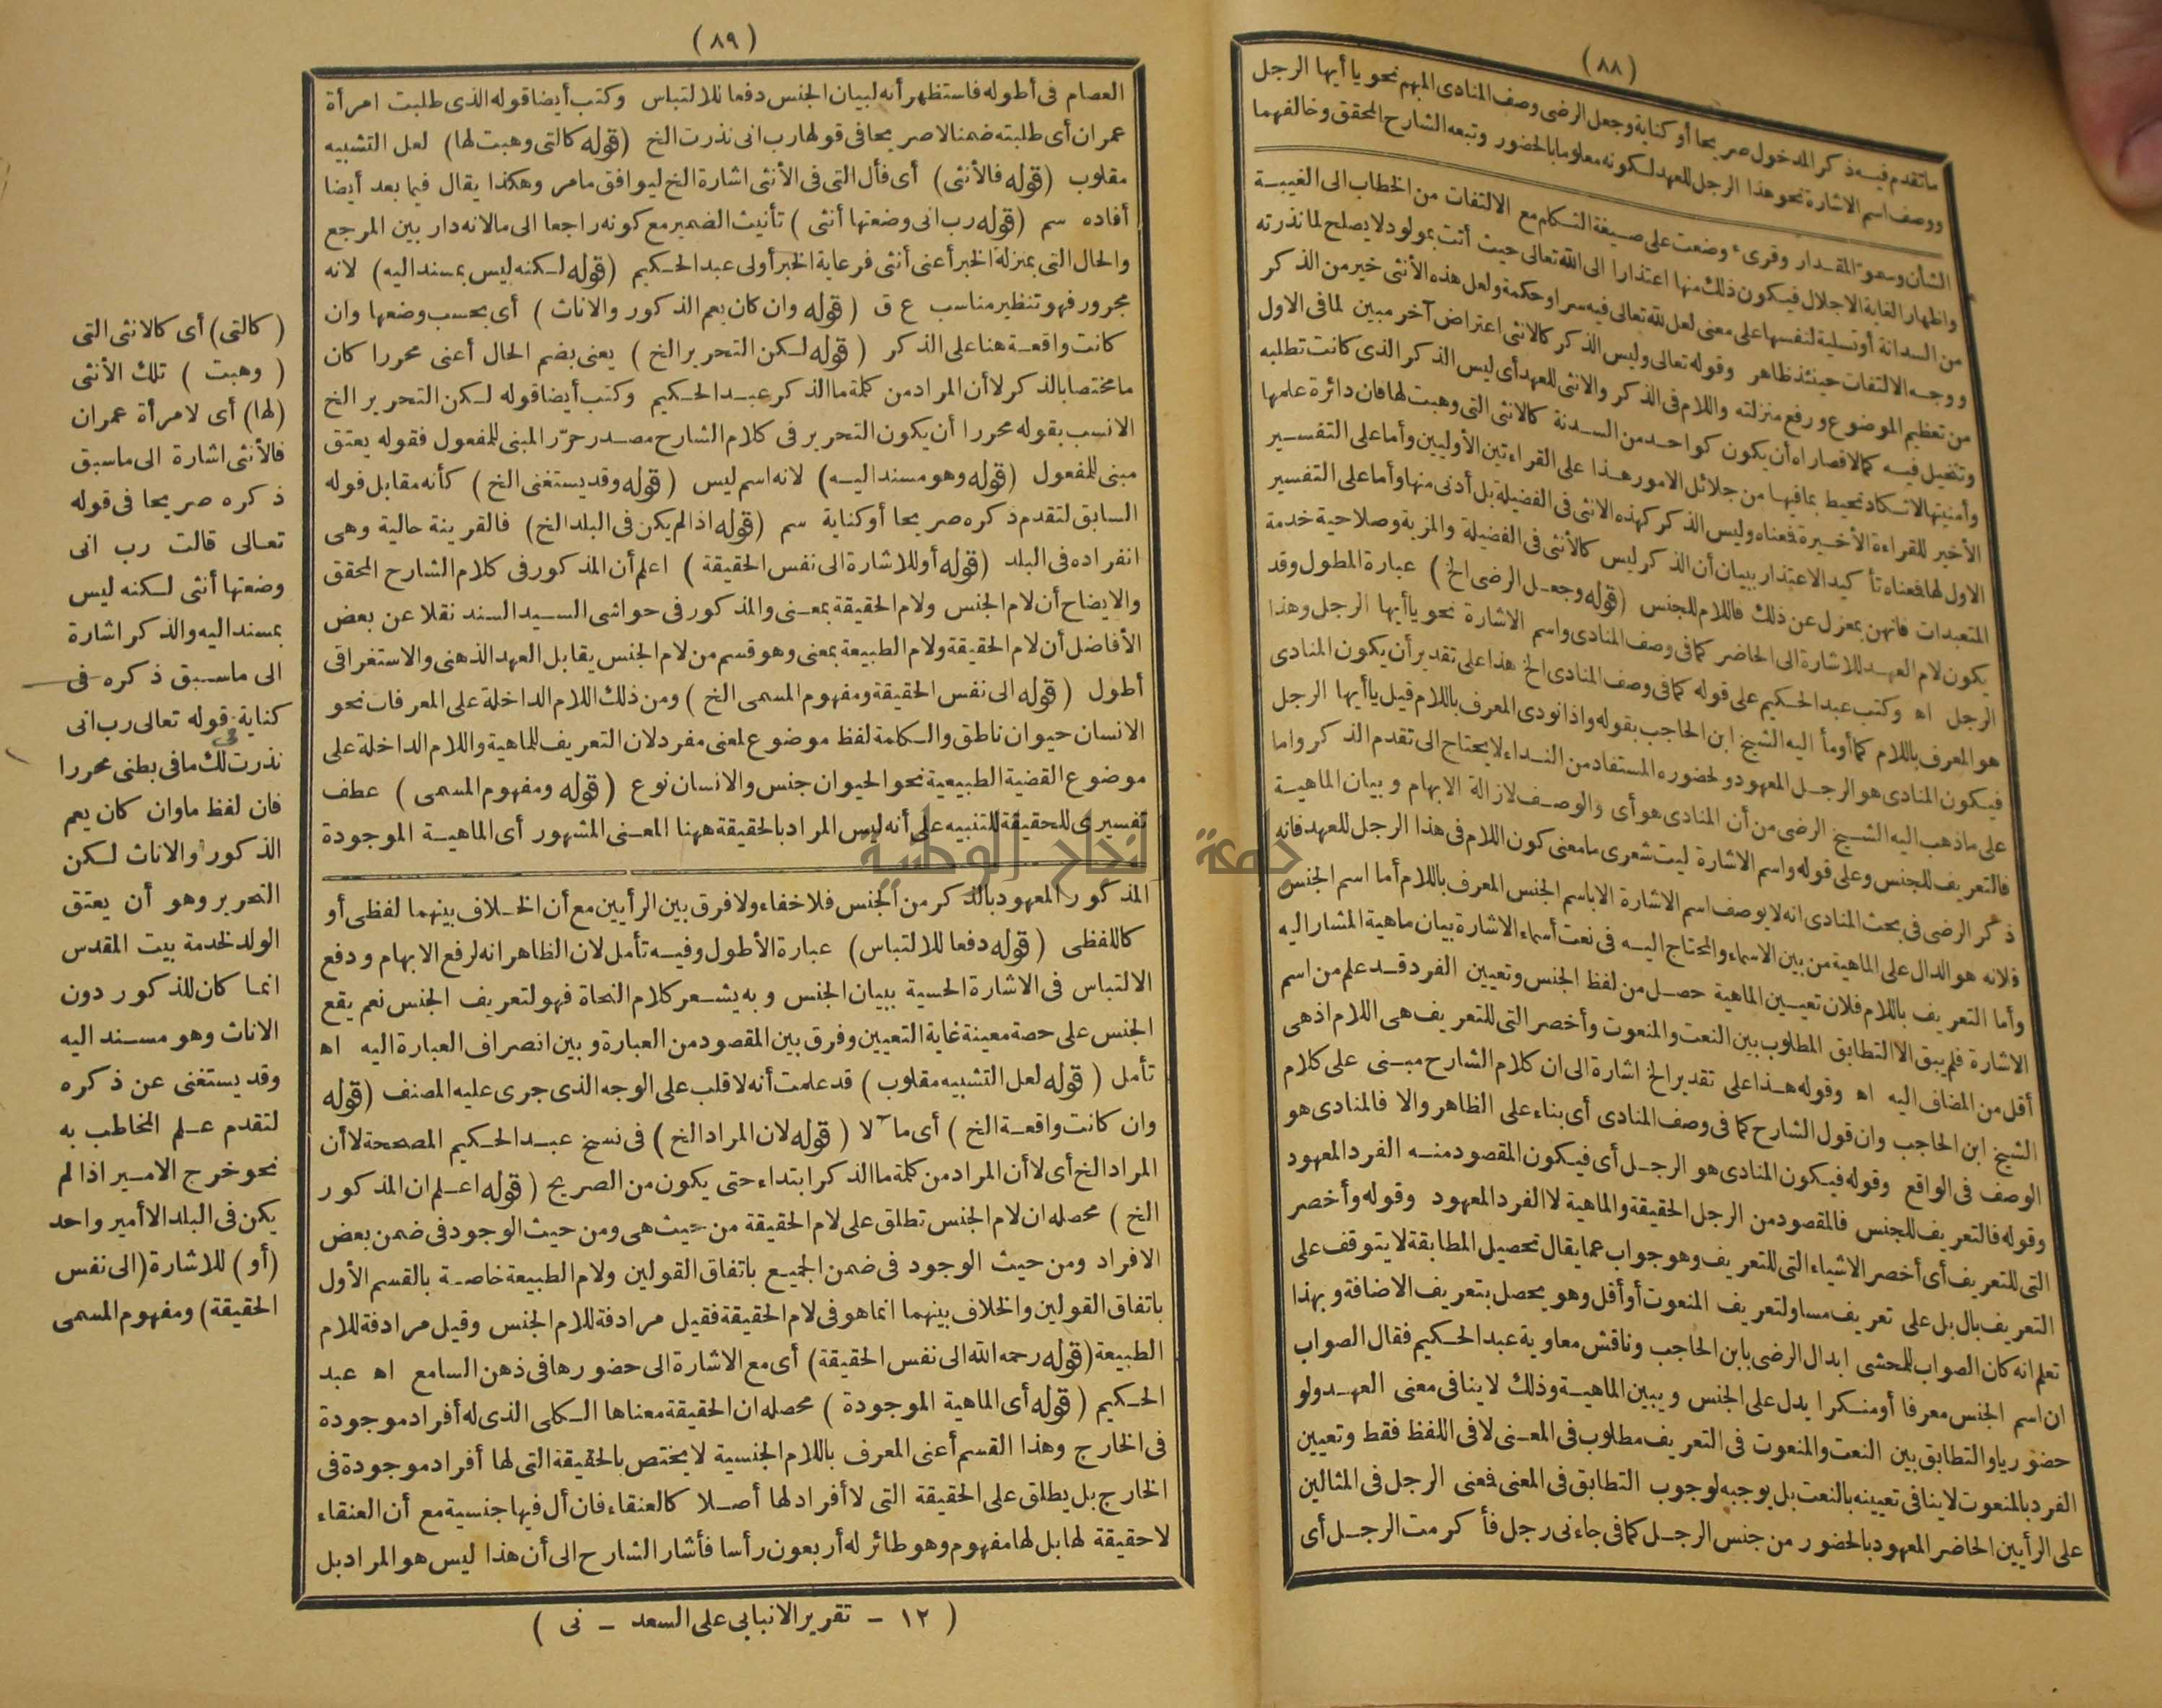 (٨٨)
ما تقدم فيه ذكر المدخول صريحا أو كناية وجعل الرضى وصف المنادى المبهم نحو يا أيها الرجل
ووصف اسم الاشارة نحو هذا الرجل للعهد لكونه معلوما بالحضور وتبعه الشارح المحقق وخالفهما
الشأن وسمو المقدار وقرىء وضعت على صيغة التكلم مع الالتفات من الخطاب الى الغيبة
واظهار الغاية الاجلال فيكون ذلك منها اعتذارا الى الله تعالى حيث أتت بمولود لا يصلح لما نذرته
من السدانة أو تسلية لنفسها على معنى لعل لله تعالى فيه سرا وحكمة ولعل هذه الأنثى خير من الذكر
ووجه الالتفات حينئذ ظاهر وقوله تعالى وليس الذكر كالانثى اعتراض آخر مبين لما فى الاول
من تعظيم الموضوع ورفع منزلته واللام فى الذكر والانثى للعهد أى ليس الذكر الذى كانت تطلبه
وتخيل فيه كمالا قصاراه أن يكون كواحد من السدنة كالانثى التى وهبت لها فان دائرة علمها
وأمنيتها لا تكاد تحيط بما فيها من جلائل الامور هذا على القراءتين الأوليين وأما على التفسير
الأخير للقراءة الأخيرة فمعناه وليس الذكر كهذه الانثى فى الفضيلة بل أدنى منها وأما على التفسير
الاول لها فمعناه تأكيد الاعتذار ببيان أن الذكر ليس كالأنثى فى الفضيلة والمزية وصلاحية خدمة
المتعبدات فانهن بمعزل عن ذلك فاللام للجنس (قوله وجعل الرضى الخ) عبارة المطول وقد
يكون لام العهد للاشارة الى الحاضر كما فى وصف المنادى واسم الاشارة نحو يا أيها الرجل وهذا
الرجل اه وكتب عبد الحكيم على قوله كما فى وصف المنادى الخ هذا على تقدير أن يكون المنادى
هو المعرف باللام كما أومأ اليه الشيخ ابن الحاجب بقوله واذا نودى المعرف باللام قيل يا أيها الرجل
فيكون المنادى هو الرجل المعهود ولحضوره المستفاد من النداء لا يحتاج الى تقدم الذكر واما
على ما ذهب اليه الشيخ الرضى من أن المنادى هو أى والوصف لازالة الابهام وبيان الماهية
فالتعريف للجنس وعلى قوله واسم الاشارة ليت شعرى ما معنى كون اللام فى هذا الرجل للعهد فانه
ذكر الرضى فى بحث المنادى انه لا يوصف اسم الاشارة الا باسم الجنس المعرف باللام أما اسم الجنس
فلانه هو الدال على الماهية من بين الاسماء والمحتاج اليه فى نعت أسماء الاشارة بيان ماهية المشار اليه
وأما التعريف باللام فلان تعيين الماهية حصل من لفظ الجنس وتعيين الفرد قد علم من اسم
الاشارة فلم يبق الا التطابق المطلوب بين النعت والمنعوت وأخصر التى للتعريف هى اللام اذ هى
أقل من المضاف اليه اه وقوله هذا على تقدير الخ اشارة الى ان كلام الشارح مبنى على كلام
الشيخ ابن الحاجب وان قول الشارح كما فى وصف المنادى أى بناء على الظاهر والا فالمنادى هو
الوصف فى الواقع وقوله فيكون المنادى هو الرجل أى فيكون المقصود منه الفرد المعهود
وقوله فالتعريف للجنس فالمقصود من الرجل الحقيقة والماهية لا الفرد المعهود وقوله وأخصر
التى للتعريف أى أخصر الاشياء التى للتعريف وهو جواب عما يقال تحصيل المطابقة لا يتوقف على
التعريف بال بل على تعريف مساو لتعريف المنعوت أو أقل وهو يحصل بتعريف الاضافة وبهذا
تعلم انه كان الصواب للمحشى ابدال الرضى بابن الحاجب وناقش معاوية عبد الحكيم فقال الصواب
ان اسم الجنس معرفا أو منكرا يدل على الجنس ويبين الماهية وذلك لا ينافى معنى العهد ولو
حضوريا والتطابق بين النعت والمنعوت فى التعريف مطلوب فى المعنى لا فى اللفظ فقط وتعيين
الفرد بالمنعوت لا ينافى تعيينه بالنعت بل يوجبه لوجوب التطابق فى المعنى فمعنى الرجل فى المثالين
على الرأيين الحاضر المعهود بالحضور من جنس الرجل كما فى جاءنى رجل فأكرمت الرجل أى
(٨٩)
العصام فى أطوله فاستظهر أنه لبيان الجنس دفعا للالتباس وكتب أيضا قوله الذى طلبت امرأة
عمران أى طلبته ضمنا لا صريحا فى قولها رب انى نذرت الخ (قوله كالتى وهبت لها) لعل التشبيه
مقلوب (قوله فالأنثى) أى فأل التى فى الأنثى اشارة الخ ليوافق ما مر وهكذا يقال فيما بعد أيضا
أفاده سم (قوله رب انى وضعتها أنثى) تأنيث الضمير مع كونه راجعا الى ما لانه دار بين المرجع
والحال التى بمنزلة الخبر أعنى أنثى فرعاية الخبر أولى عبد الحكيم (قوله لكنه ليس بمسند اليه) لانه
مجرور فهو تنظير مناسب ع ق (قوله وان كان يعم الذكور والاناث) أى بحسب وضعها وان
كانت واقعة هنا على الذكر (قوله لكن التحرير الخ) يعنى بضم الحال أعنى محررا كان
ما مختصا بالذكر لا أن المراد من كلمة ما الذكر عبد الحكيم وكتب أيضا قوله لكن التحرير الخ
الانسب بقوله محررا أن يكون التحرير فى كلام الشارح مصدر حرّر المبنى للمفعول فقوله يعتق
مبنى للمفعول (قوله وهو مسند اليه) لانه اسم ليس (قوله وقد يستغنى الخ) كأنه مقابل قوله
السابق لتقدم ذكره صريحا أو كناية سم (قوله اذا لم يكن فى البلد الخ) فالقرينة حالية وهى
انفراده فى البلد (قوله أو للاشارة الى نفس الحقيقة) اعلم أن المذكور فى كلام الشارح المحقق
والايضاح أن لام الجنس ولام الحقيقة بمعنى والمذكور فى حواشى السيد السند نقلا عن بعض
الأفاضل أن لام الحقيقة ولام الطبيعة بمعنى وهو قسم من لام الجنس يقابل العهد الذهنى والاستغراقى
أطول (قوله الى نفس الحقيقة ومفهوم المسمى الخ) ومن ذلك اللام الداخلة على المعرفات نحو
الانسان حيوان ناطق والكلمة لفظ موضوع لمعنى مفرد لان التعريف للماهية واللام الداخلة على
موضوع القضية الطبيعية نحو الحيوان جنس والانسان نوع (قوله ومفهوم المسمى) عطف
تفسيرى للحقيقة للتنبيه على أنه ليس المراد بالحقيقة ههنا المعنى المشهور أى الماهية الموجودة
المذكور المعهود بالذكر من الجنس فلا خفاء ولا فرق بين الرأيين مع أن الخلاف بينهما لفظى أو
كاللفظى (قوله دفعا للالتباس) عبارة الأطول وفيه تأمل لان الظاهر انه لرفع الابهام ودفع
الالتباس فى الاشارة الحسية ببيان الجنس وبه يشعر كلام النحاة فهو لتعريف الجنس نعم يقع
الجنس على حصة معينة غاية التعيين وفرق بين المقصود من العبارة وبين انصراف العبارة اليه اه
تأمل (قوله لعل التشبيه مقلوب) قد علمت أنه لا قلب على الوجه الذى جرى عليه المصنف (قوله
وان كانت واقعة الخ) أى مآلا (قوله لان المراد الخ) فى نسخ عبد الحكيم المصححة لا أن
المراد الخ أى لا أن المراد من كلمة ما الذكر ابتداء حتى يكون من الصريح (قوله اعلم ان المذكور
الخ) محصله ان لام الجنس تطلق على لام الحقيقة من حيث هى ومن حيث الوجود فى ضمن بعض
الافراد ومن حيث الوجود فى ضمن الجميع باتفاق القولين ولام الطبيعة خاصة بالقسم الأول
باتفاق القولين والخلاف بينهما انما هو فى لام الحقيقة فقيل مرادفة للام الجنس وقيل مرادفة للام
الطبيعة (قوله رحمه الله الى نفس الحقيقة) أى مع الاشارة الى حضورها فى ذهن السامع اه عبد
الحكيم (قوله أى الماهية الموجودة) محصله ان الحقيقة معناها الكلى الذى له أفراد موجودة
فى الخارج وهذا القسم أعنى المعرف باللام الجنسية لا يختص بالحقيقة التى لها أفراد موجودة فى
الخارج بل يطلق على الحقيقة التى لا أفراد لها أصلا كالعنقاء فان أل فيها جنسية مع أن العنقاء
لا حقيقة لها بل لها مفهوم وهو طائر له أربعون رأسا فأشار الشارح الى أن هذا ليس هو المراد بل
(١٢ - تقرير الانبابى على السعد - نى)
(كالتى) أى كالانثى التى
(وهبت) تلك الأنثى
(لها) أى لامرأة عمران
فالأنثى اشارة الى ما سبق
ذكره صريحا فى قوله
تعالى قالت رب انى
وضعتها أنثى لكنه ليس
بمسند اليه والذكر اشارة
الى ما سبق ذكره فى
كناية قوله تعالى رب انى
فى
نذرت لك ما فى بطنى محررا
فان لفظ ما وان كان يعم
الذكور والاناث لكن
التحرير وهو أن يعتق
الولد لخدمة بيت المقدس
انما كان للذكور دون
الاناث وهو مسند اليه
وقد يستغنى عن ذكره
لتقدم علم المخاطب به
نحو خرج الامير اذا لم
يكن فى البلد الا أمير واحد
(أو) للاشارة (الى نفس
الحقيقة) ومفهوم المسمى